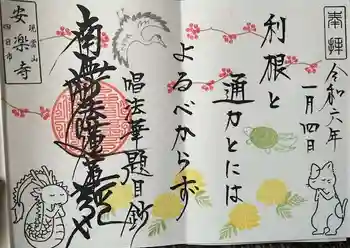 奉拝
令和六年
一月四日
利根と
通力とには
よるべからず
唱法華題目鈔
南無妙法蓮華経
現雲山
安楽寺
四日市